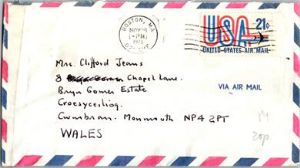 BOSTON, MA
NOV
PM
USA 21¢
UNITED STATES AIR MAIL
Mrs. Clifford Jeans
3 Chapel Lane.
Bryn Gomer Estate
Croesyceiliog.
Cwmbran. Monmouth NP4 2PT
WALES
VIA AIR MAIL